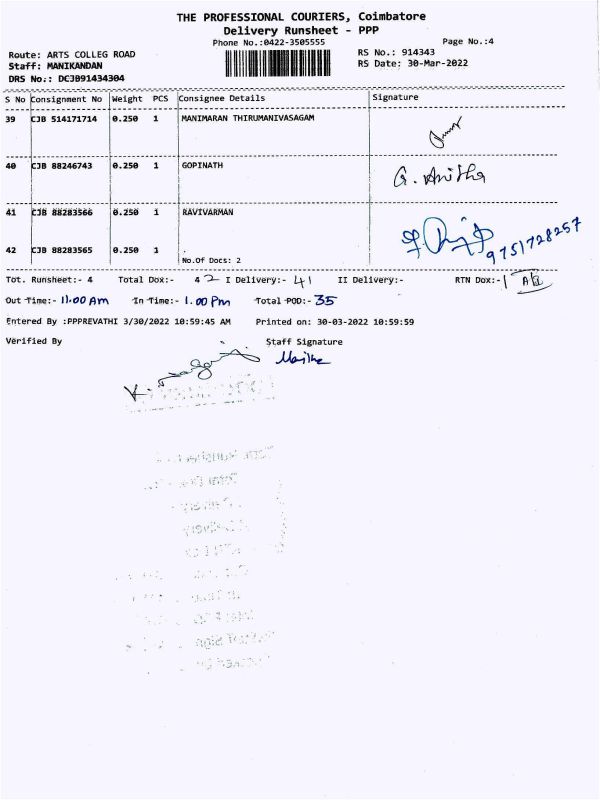 THE PROFESSIONAL COURIERS, Coimbatore
Delivery Runsheet - PPP
Phone No.:0422-3505555 Page No.:4
Route: ARTS COLLEG ROAD RS No.: 914343
Staff: MANIKANDAN RS Date: 30-Mar-2022
DRS No.: DCJB91434304
S No Consignment No Weight PCS Consignee Details Signature
39 CJB 514171714 0.250 1 MANIMARAN THIRUMANIVASAGAM
40 CJB 88246743 0.250 1 GOPINATH G. Anitha
41 CJB 88283566 0.250 1 RAVIVARMAN
9751728257
42 CJB 88283565 0.250 1 .
No.Of Docs: 2
Tot. Runsheet:- 4 Total Dox:- 42 I Delivery:- 41 II Delivery:- RTN Dox:- 1
Out Time:- 11.00 Am In Time:- 1.00 Pm Total POD:- 35
Entered By :PPPREVATHI 3/30/2022 10:59:45 AM Printed on: 30-03-2022 10:59:59
Verified By Staff Signature